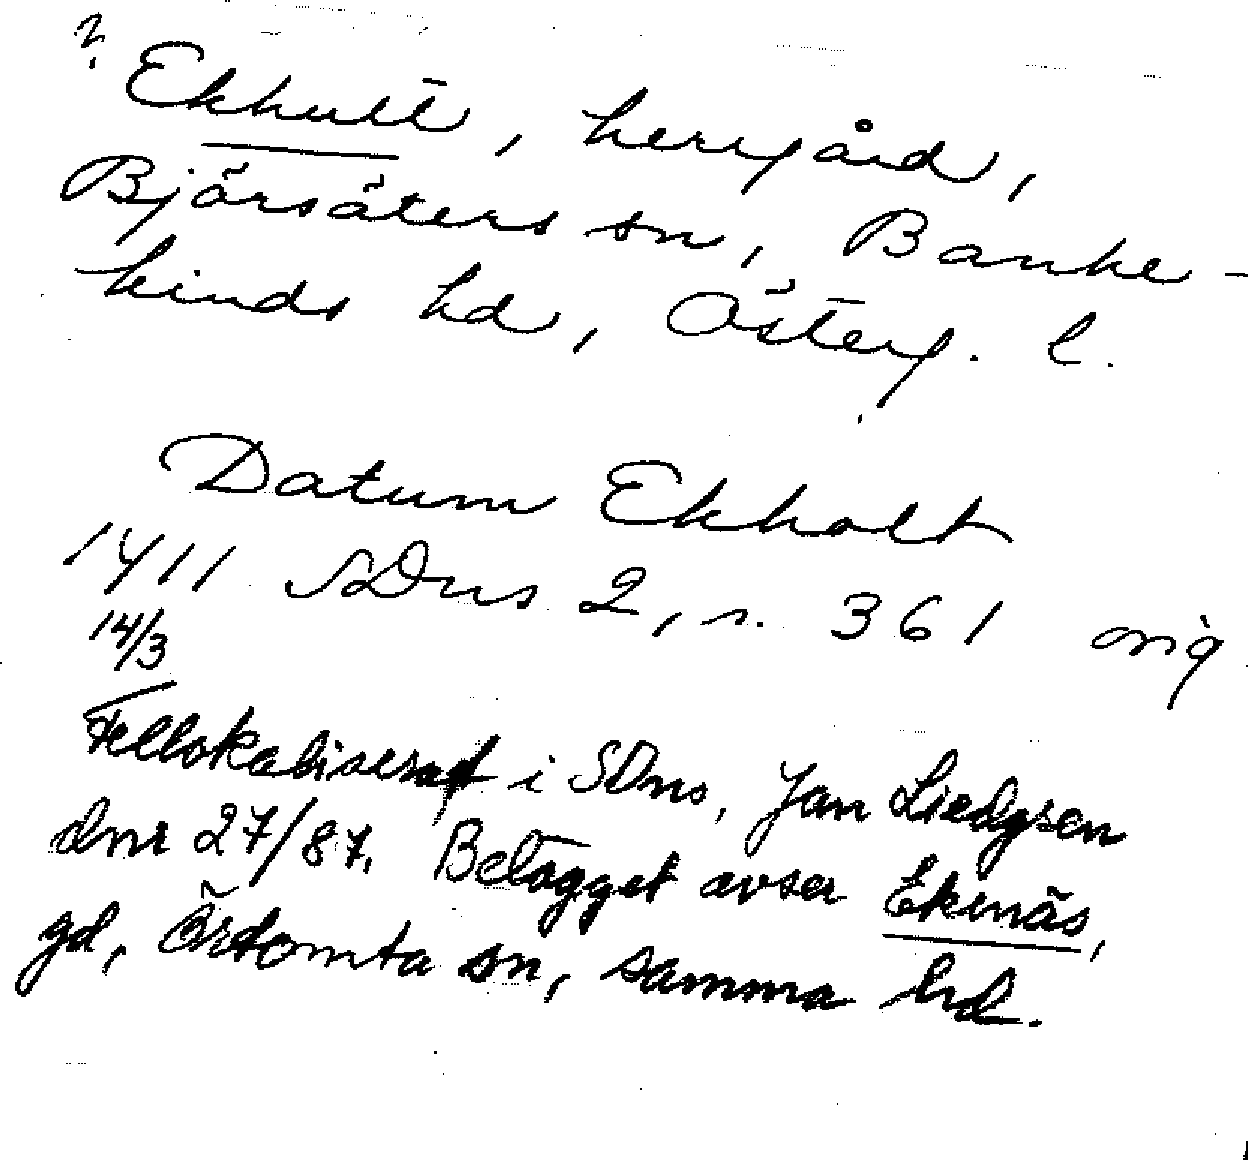 ? Ekhult, herrgård,
Björsäters sn, Banke-
kinds hd, Österg. l.
Datum Ekholt
1411 SDns 2, s. 361 orig
14/3
Fellokaliserat i SDns, Jan Liedgren
dnr 27/87. Belägget avser Ekenäs,
gd, Örtomta sn, samma hd.